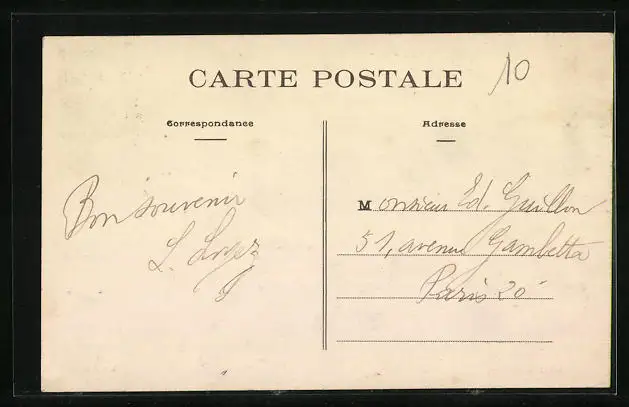 CARTE POSTALE
10
Correspondance
Adresse
Bon souvenir
L.
Monsieur Ed. Guillon
51, avenue Gambetta
Paris 20